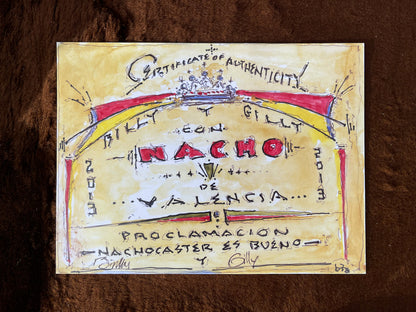 CERTIFICATE OF AUTHENTICITY
BILLY Y GILLY
CON
NACHO
2013
2013
DE
VALENCIA
PROCLAMACION
NACHOCASTER ES BUENO
Billy Y Gilly
bfg